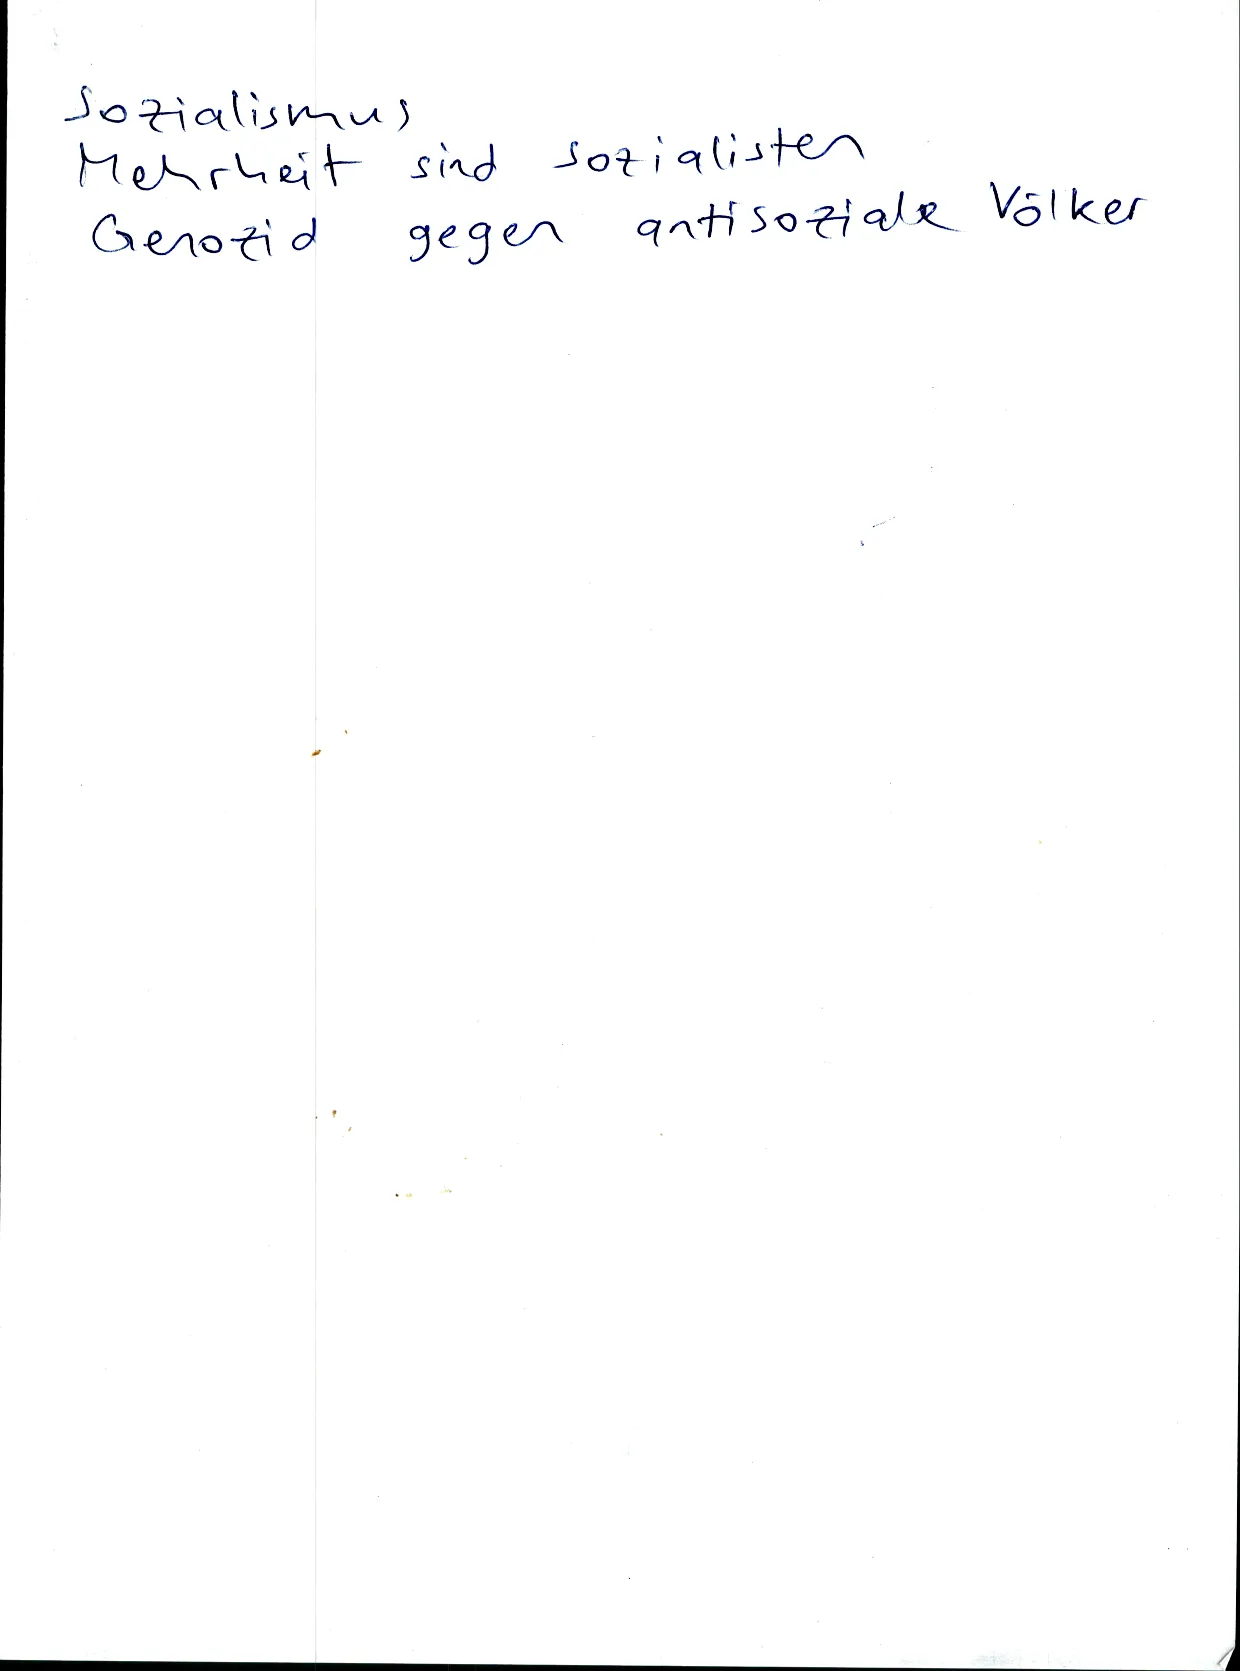 Sozialismus
Mehrheit sind sozialisten
Genozid gegen antisoziale Völker